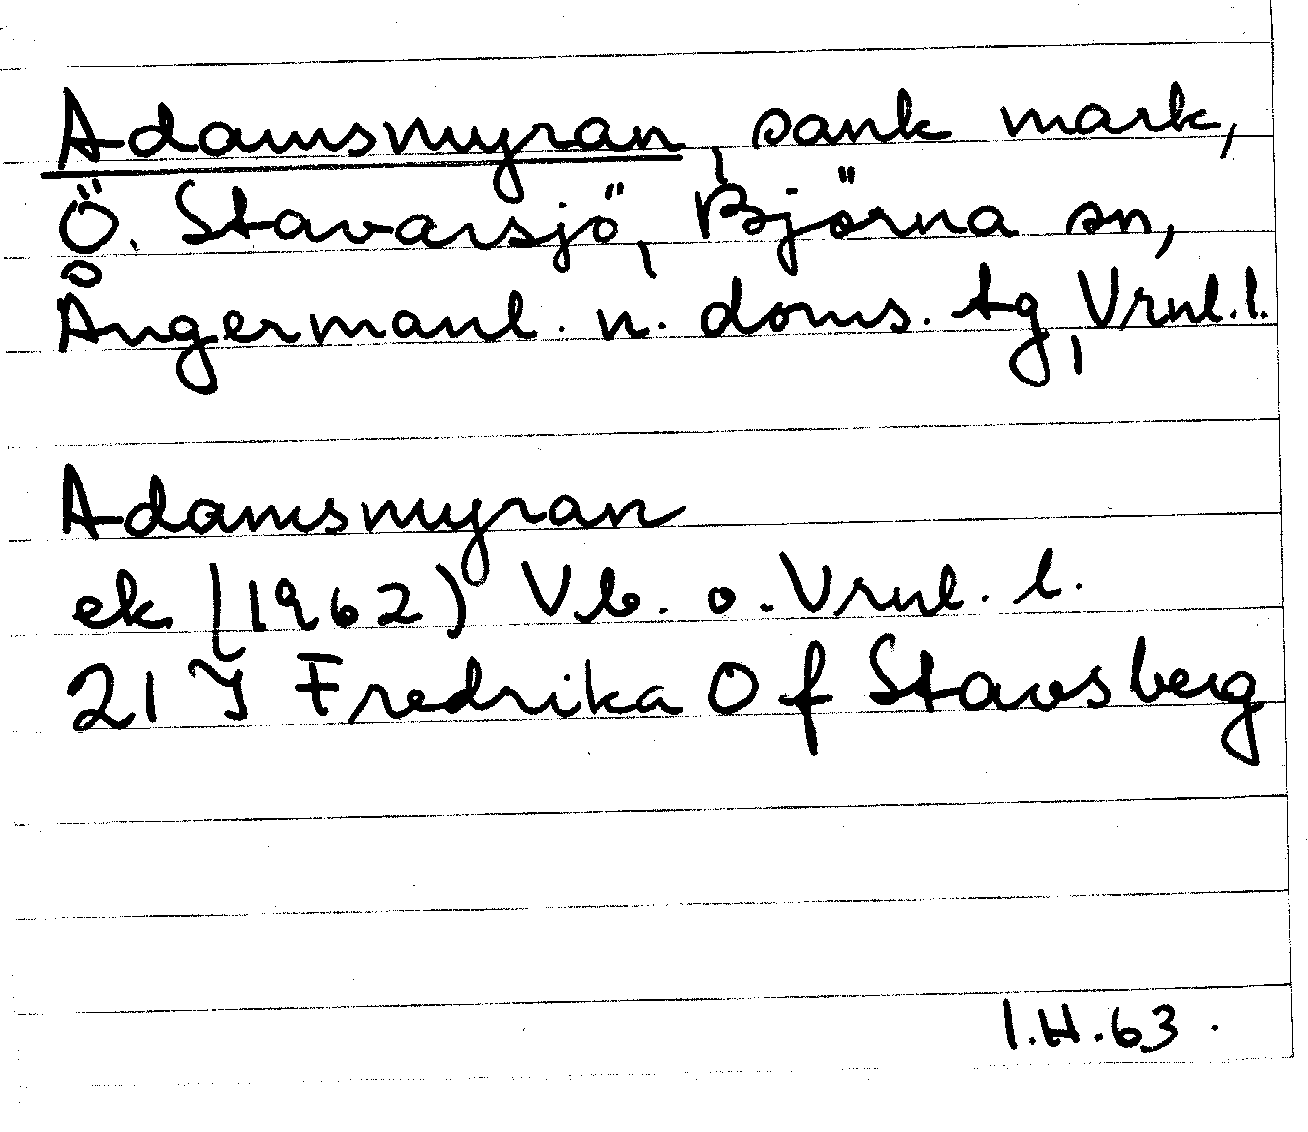 Adamsmyran, sank mark,
Ö. Stavarsjö, Björna sn,
Ångermanl. n. doms. tg, Vrnl. l.
Adamsmyran
ek (1962) Vb. o. Vrnl. l.
21 I Fredrika O f Stavsberg
I.H.63.